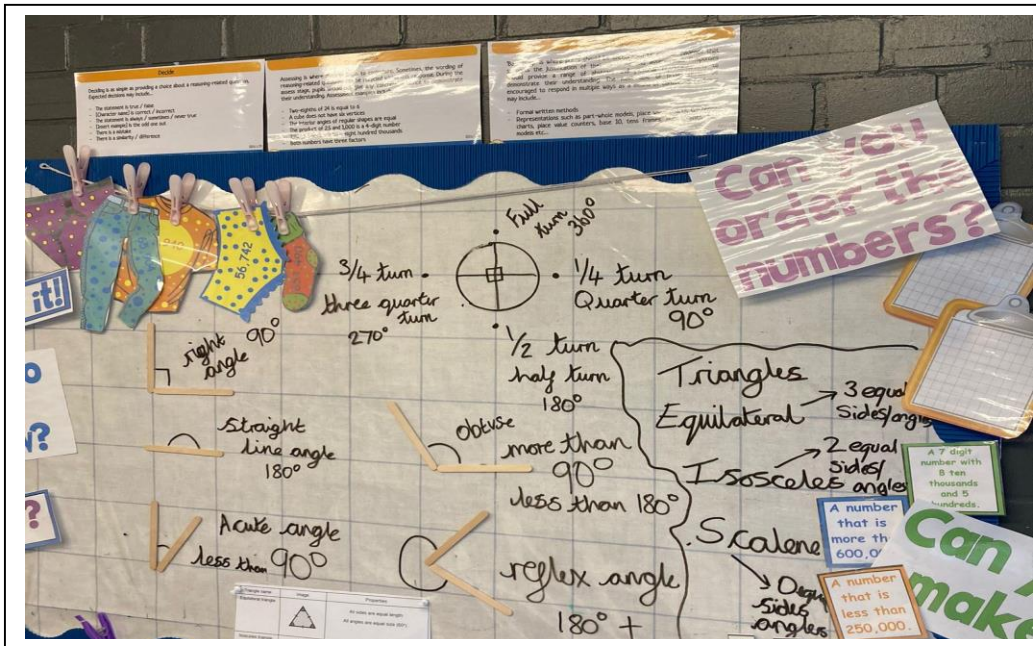 Decide
Deciding is as simple as providing a choice about a reasoning-related question.
Expected decisions may include...
- The statement is true / false
- [Character name] is correct / incorrect
- The statement is always / sometimes / never true
- [Insert example] is the odd one out
- There is a mistake
- There is a similarity / difference
Assessing is where
Sometimes, the wording of
their understanding.
- Two-eighths of 24 is equal to 6
- A cube does not have six vertices
- The interior angles of regular shapes are equal
- The product of 23 and 1,000 is a 4-digit number
eight hundred thousands
- Both numbers have three factors
would provide a range of
demonstrate their understanding.
encouraged to respond in multiple ways as
may include...
- Formal written methods
- Representations such as part-whole models, place value
charts, place value counters, base 10, tens frames,
models etc...
Can you
order the
numbers?
56,742
it!
Full
turn
360°
3/4 turn
three quarter
turn
270°
1/4 turn
Quarter turn
90°
1/2 turn
half turn
180°
right
angle
90°
Straight
line angle
180°
Acute angle
less than 90°
obtuse
more than
90°
less than 180°
reflex angle
180° +
Triangles
Equilateral
3 equal
sides/angles
Isosceles
2 equal
sides/
angles
Scalene
0 equal
sides
angles
A 7 digit
number with
8 ten
thousands
and 5
hundreds.
A number
that is
more
A number
that is
less than
250,000.
Can
make
Triangle name
Image
Properties
Equilateral triangle
All sides are equal length.
All angles are equal size (60°).